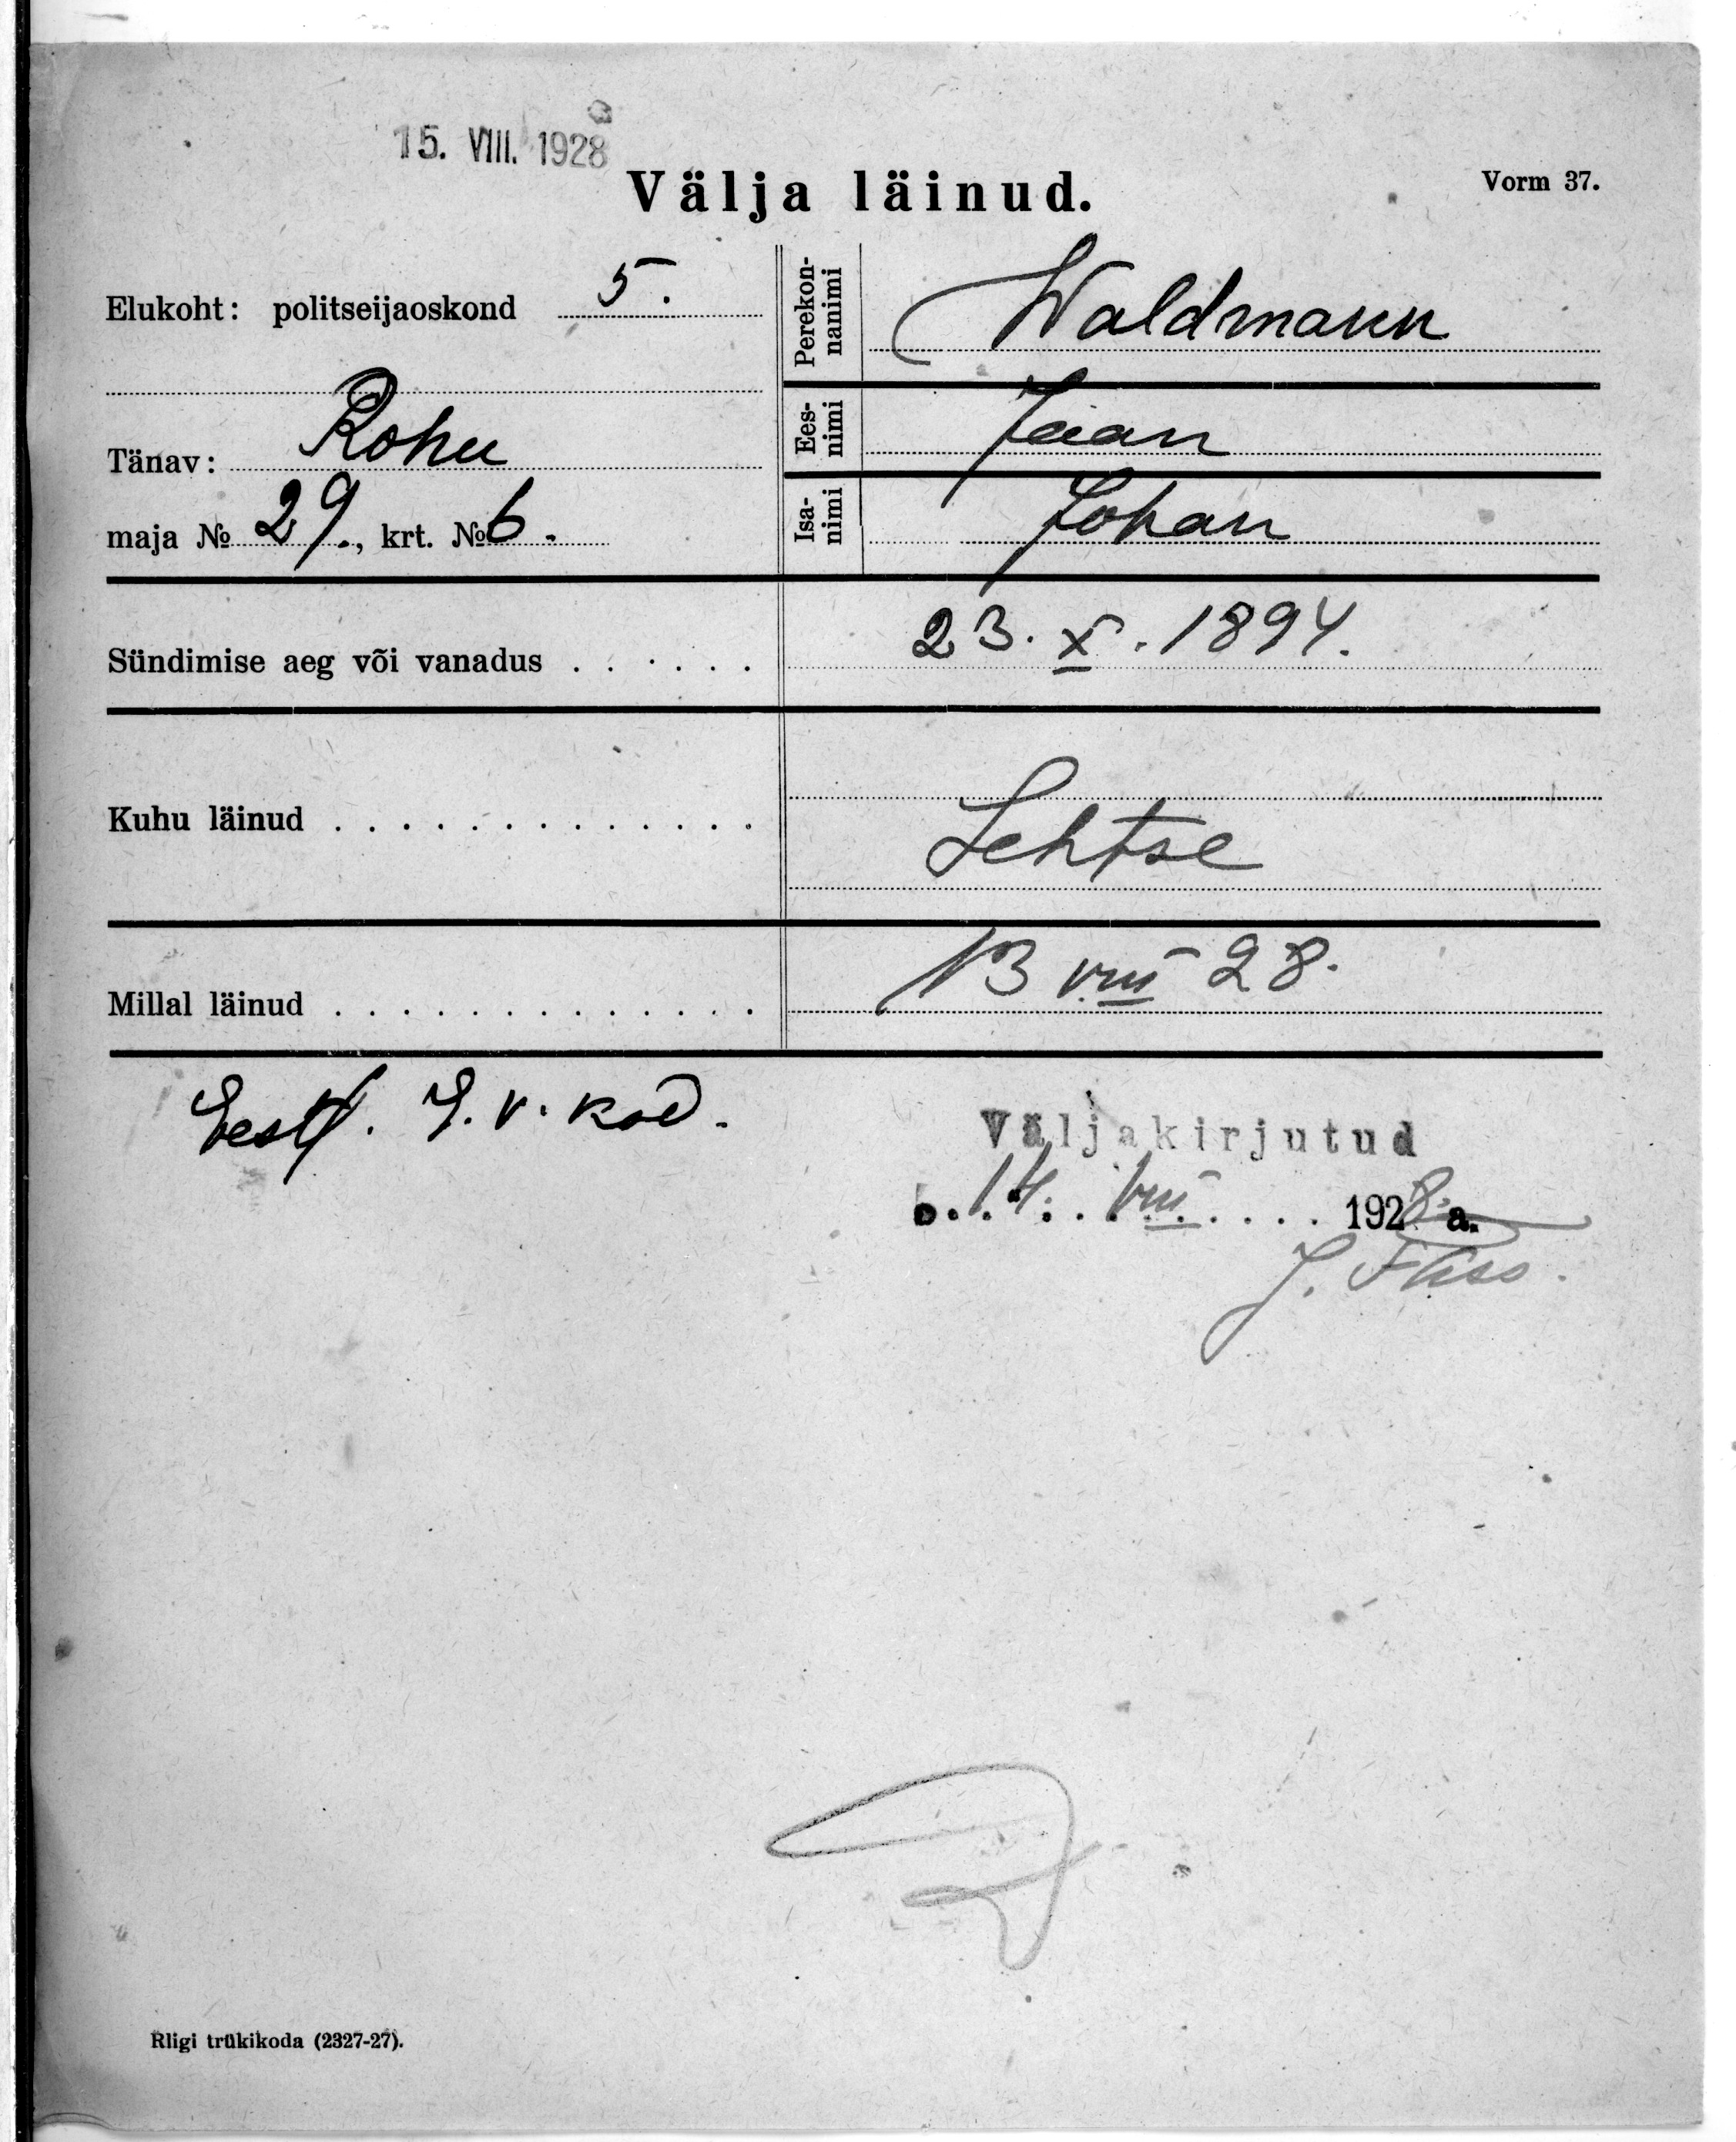 15. VIII. 1928
Välja läinud.
Vorm 37.
Elukoht: politseijaoskond 5.
Tänav: Rohu
maja № 29., krt. № 6.
Perekon-
nanimi
Waldmann
Ees-
nimi
Jaan
Isa-
nimi
Johan
Sündimise aeg või vanadus . . . . . . 23. X. 1894.
Kuhu läinud . . . . . . . . . . . . . Lehtse
Millal läinud . . . . . . . . . . . . . 13 VIII 28.
Eestl. E. v. kod.
Väljakirjutud
14. VIII 1928 a.
J.
Riigi trükikoda (2327-27).